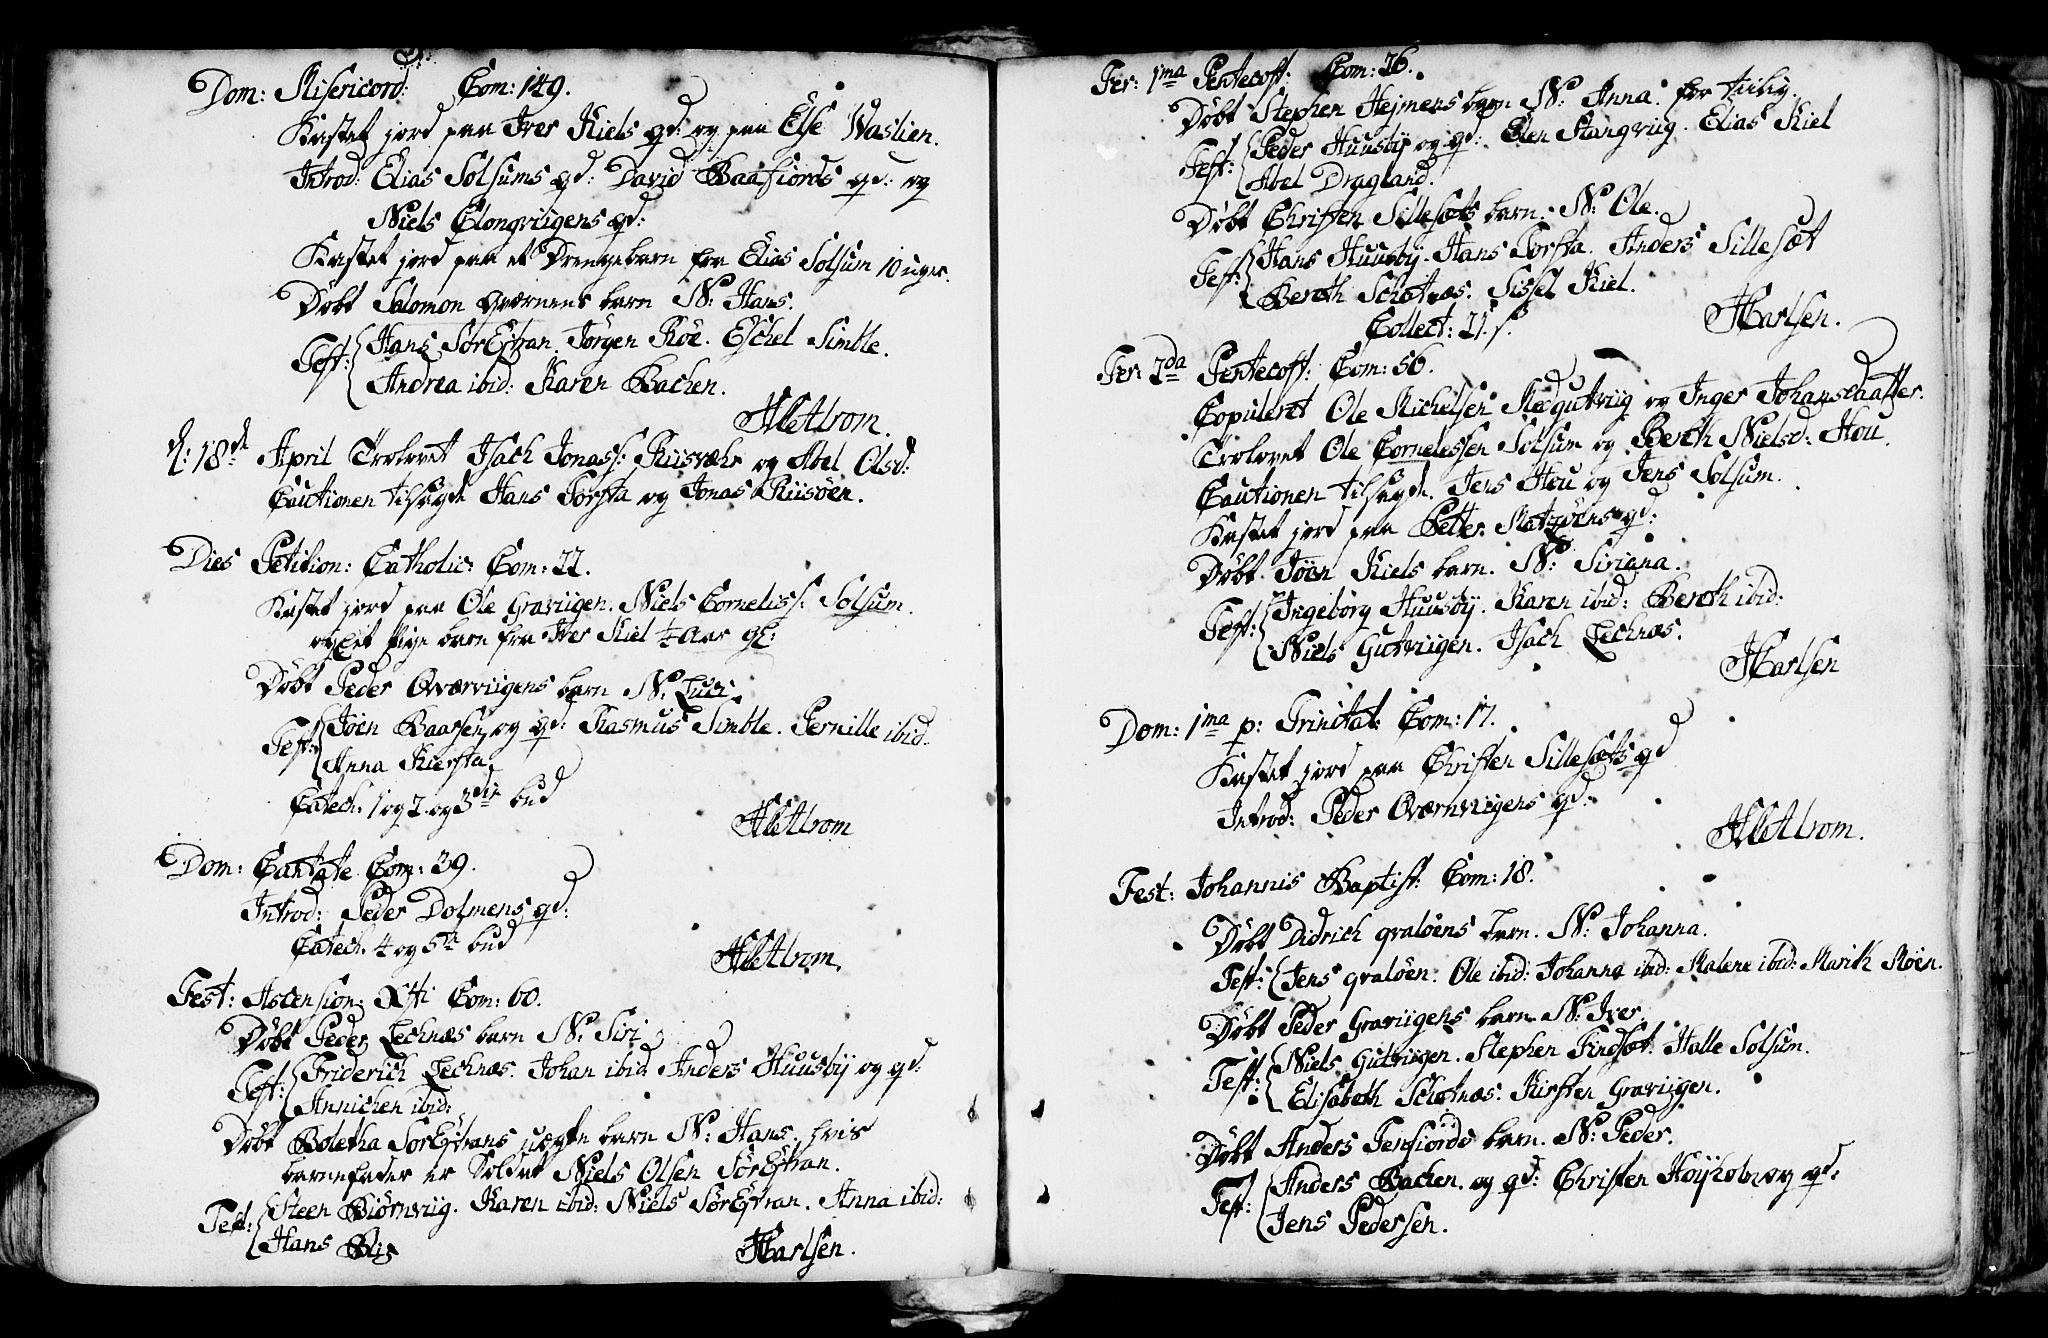 Dom: Misericord: Com: 149.
Kastet jord paa Iver Kiels qd: og paa Else Waslien.
Introd: Elias Solsums qd: David Baafiords qd: og
Niels Elongviigens qd:
Kastet jord paa et Drengebarn fra Elias Solsum 10 uger.
Döbt Salomon Qværnens barn N: Hans.
Test: Hans SörEstran. Jörgen Röe. Eschel Simble.
Andrea ibid: Karen Bachen.
d: 18de April Trolovet Isach Jonass: Riisvæhr og Abel Olsd:
Cautionen tilsagde Hans Torsta og Jonas Riisöen.
Dies Petition: Catholic: Com: 22.
Kastet jord paa Ole Graviigen. Niels Corneliss: Solsum.
og eet Pige barn fra Iver Kiel ¼ Aar gl:
Döbt Peder Qværviigens barn N: Luci.
Test: Joen Baarsen og qd: Rasmus Simble. Pernille ibid.
Anna Kiersta
Catech: 1 og 2 og 3die bud
Dom: Cantate Com: 39.
Introd: Peder Dolmens qd:
Catech: 4 og 5te bud
Fest: Ascension: Xti Com: 60.
Döbt Peder Lechnæs barn N: Siri
Test: Friderich Lechnæs. Johan ibid Anders Huusby og qd:
Annichen ibid:
Döbt Boletha SorEstrans uægte barn N: Hans. hvis
barnefader er Soldat Niels Olsen SörEstran.
Test: Steen Biörnviig. Karen ibid: Niels SörEstran. Anna ibid:
Hans
HCarlsen.
Fer: 1ma Pentecost: Com: 26.
Döbt Stephen Hejmens barn N: Anna. for tiilig.
Test: Peder Huusby og qd: Elen Stangviig. Elias Kiel
Abel Dragland.
Döbt Christen Sillesæts barn. N: Ole.
Test: Hans Huusby. Hans Torsta. Anders Sillesæt
Bereth Schotnæs. Sissel Kiel.
Collect: 21 s.
HCarlsen.
Fer: 2da Pentecost: Com: 56.
Copuleret Ole Michelsen Medgutviig og Inger Johansdaatter.
Trolovet Ole Cornelessen Solsum og Bereth Nielsd: Hou
Cautionen tilsagde. Jens Hou og Jens Solsum.
Kastet jord paa Petter qd:
Döbt Joen Kiels barn. N: Siriana.
Test: Ingeborg Huusby. Karen ibid: Bereth ibid:
Niels Gutviigen. Isach Lechnæs.
HCarlsen
Dom: 1ma p: Trinitat: Com: 17.
Kastet jord paa Christen Sillesæts qd
Introd: Peder Qværnviigens qd:
Fest: Johannis Baptist: Com: 18.
Döbt Didrich graloens barn. N: Johanna.
Test: Jens graloen. Ole ibid: Johanna ibid: Malene ibid: Marith Röen.
Döbt Peder Graviigens barn N: Iver.
Test: Niels Gutviigen. Stephen Findsæt. Halle Solsum.
Elisabeth Schotnæs. Kirsten Graviigen.
Döbt Anders Terfiords barn. N: Peder.
Test: Anders Bachen og qd: Christen Höyholm og qd:
Jens Pedersen.